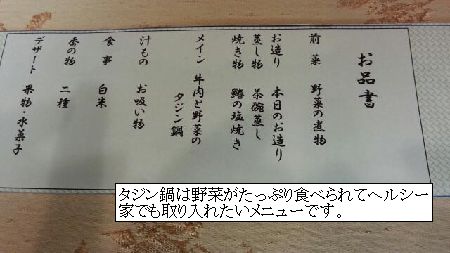 お品書
前菜 野菜の煮物
お造り 本日のお造り
蒸し物 茶碗蒸し
焼き物 鰆の塩焼き
メイン 牛肉と野菜の
タジン鍋
汁もの お吸い物
食事 白米
香の物 二種
デザート 果物・水菓子
タジン鍋は野菜がたっぷり食べられてヘルシー
家でも取り入れたいメニューです。